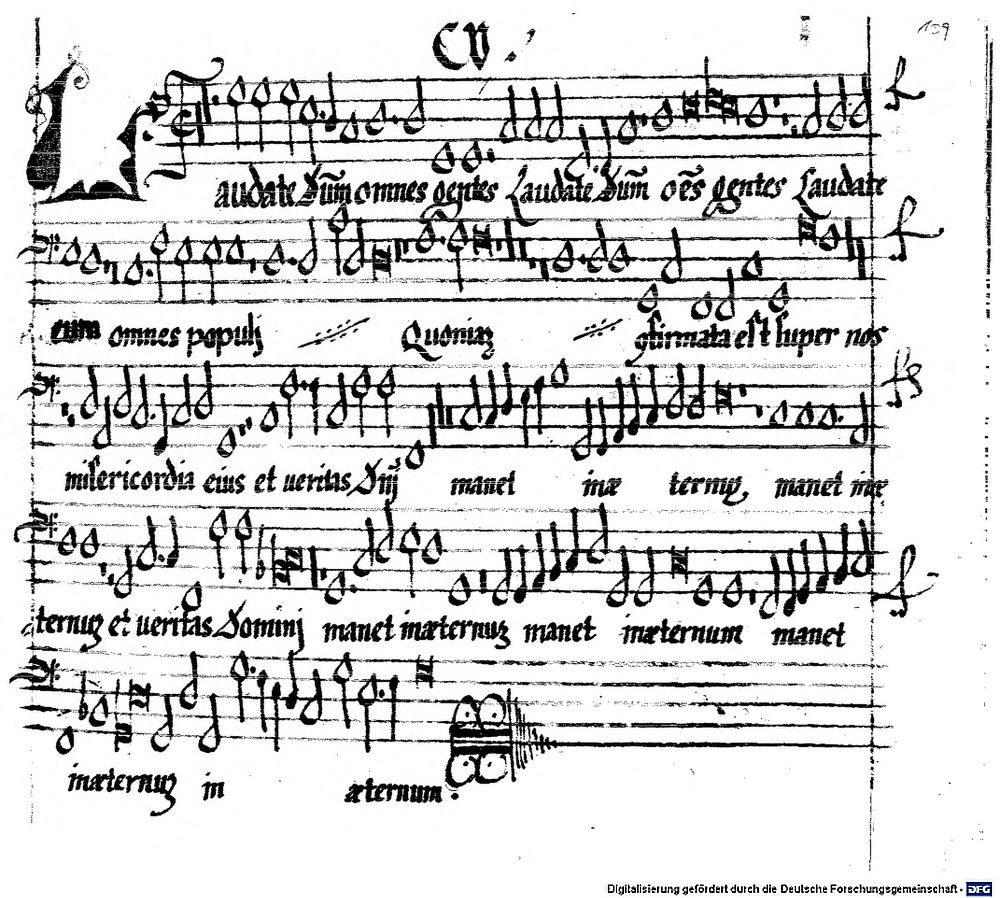 CV.
109
Laudate Dūm omnes gentes Laudate Dūm oēs gentes Laudate
eum omnes populj Quoniaʒ ꝯfirmata est super nos
misericordia eius et ueritas Dnj manet inæ ternuʒ, manet inæ
ternuʒ et ueritas Dominj manet inæternuʒ manet inæternum manet
inæternuʒ in æternum.
Digitalisierung gefördert durch die Deutsche Forschungsgemeinschaft - DFG